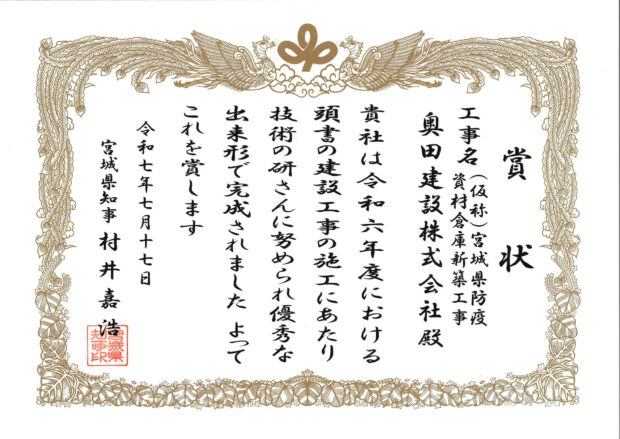 賞状
工事名(仮称)宮城県防疫
資材倉庫新築工事
奥田建設株式会社殿
貴社は令和六年度における
頭書の建設工事の施工にあたり
技術の研さんに努められ優秀な
出来形で完成されました よって
これを賞します
令和七年七月十七日
宮城県知事 村井嘉浩
宮城県
知事印